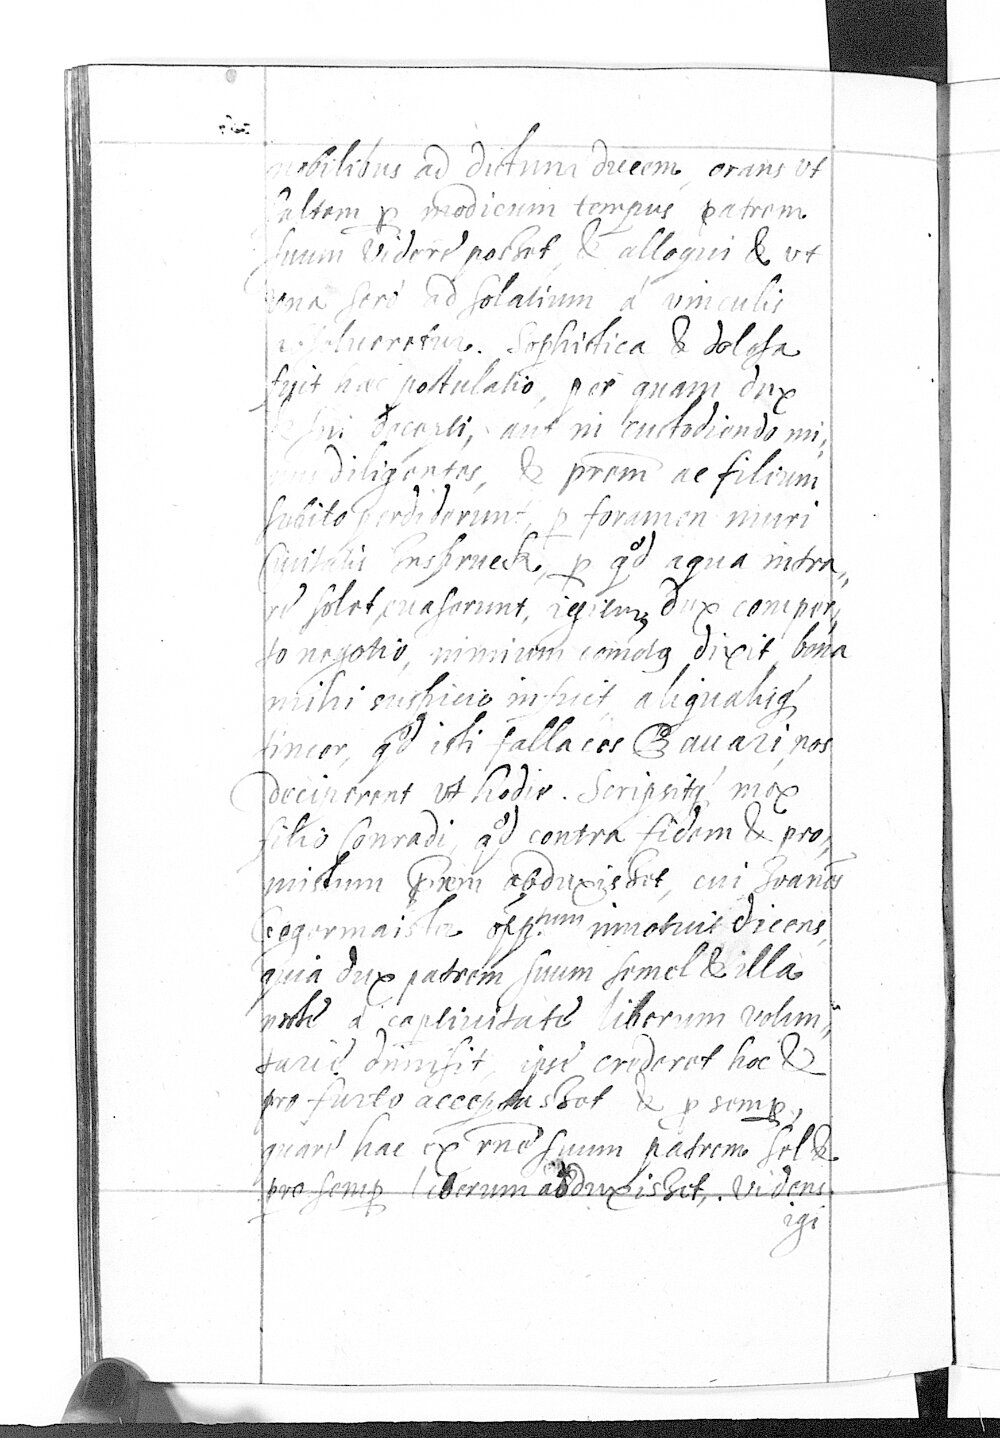 nobilibus ad dictum ducem, orans ut
saltem p modicum tempus patrem
suum videre posset, & alloqui & ut
una sero ad solatium á vinculis
solueretur. Sophistica & dolosa
fuit haec postulatio, per quam dux
& sui decepti, aut in custodiendo mi,,
nus diligentes, & prem ac filium
subito perdiderunt, p foramen muri
Ciuitatis Ensprueck, p qd aqua intra,,
re solet, euaserunt, igitur dux comper,,
to negotio, nimium comotq dixit, bona
mihi suspicio infuit, aliqualisq
timor, qd isti fallaces & auari, nos
deciperent ut hodie. Scripsitq mox
filio Conradi, qd contra fidem & pro,,
missum prem abduxisset, cui Joanes
Segermaister oppitum innotuit dicens,
quia dux patrem suum semel & illa
nocte á captiuitate liberum volun,,
tarie dimisit, ipse crederet hoc &
pro furto acceptasset & p semp,
quare hac ex rne suum patrem sel &
pro semp liberum abduxisset,. Videns
igi